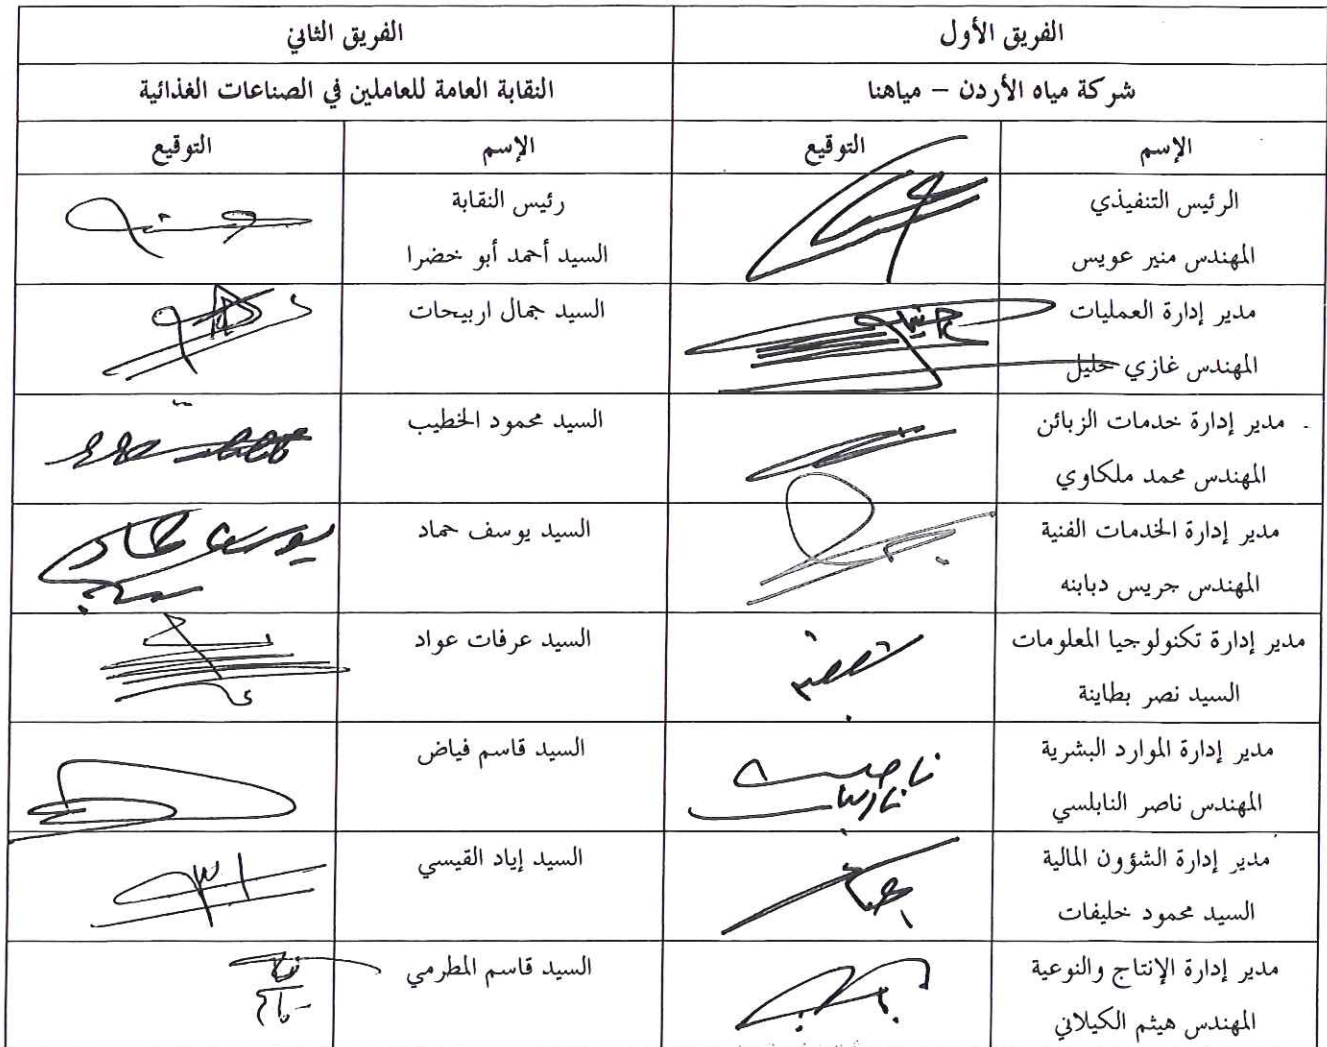 الفريق الأول
الفريق الثاني
شركة مياه الأردن – مياهنا
النقابة العامة للعاملين في الصناعات الغذائية
الإسم
التوقيع
الإسم
التوقيع
الرئيس التنفيذي
المهندس منير عويس
رئيس النقابة
السيد أحمد أبو خضرا
مدير إدارة العمليات
المهندس غازي خليل
السيد جمال اربيحات
مدير إدارة خدمات الزبائن
المهندس محمد ملكاوي
السيد محمود الخطيب
مدير إدارة الخدمات الفنية
المهندس جريس دبابنه
السيد يوسف حماد
يوسف حماد
مدير إدارة تكنولوجيا المعلومات
السيد نصر بطاينة
السيد عرفات عواد
مدير إدارة الموارد البشرية
المهندس ناصر النابلسي
السيد قاسم فياض
مدير إدارة الشؤون المالية
السيد محمود خليفات
السيد إياد القيسي
مدير إدارة الإنتاج والنوعية
المهندس هيثم الكيلاني
السيد قاسم المطرمي